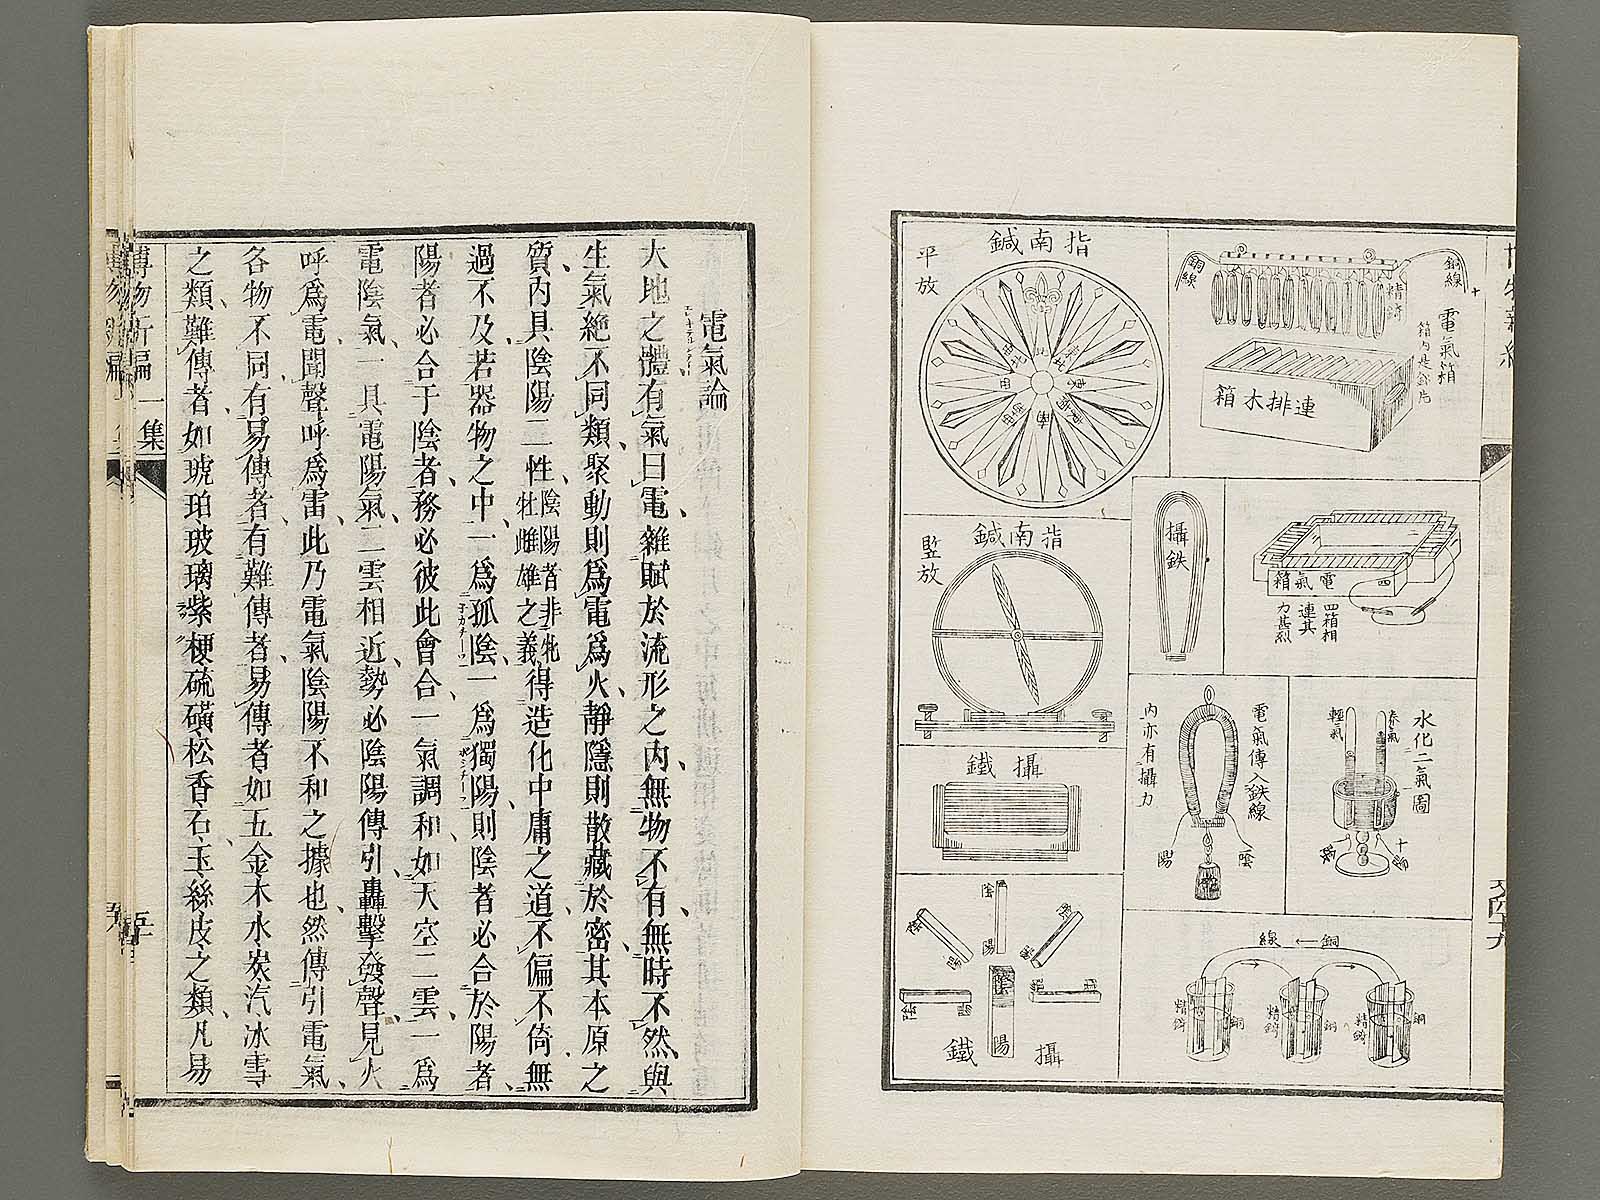 博物新編
電氣箱
銅線
銅線
精錡
連排木箱
指南鍼
平放
電氣箱
四箱相
連其
力甚烈
攝鉄
指南鍼
竪放
水化二氣圖
養氣
輕氣
電氣傳入鉄線
內亦有攝力
陰
陽
攝鐵
陰
陽
攝鐵
銅線
銅
精錡
銅
精錡
銅
精錡
電氣論
大地之體有氣曰電、雜賦於流形之內、無物不有、無時不然、與
生氣絶不同類、聚動則爲電爲火、靜隱則散藏於密、其本原之
質、內具陰陽二性、陰陽者非牝牡雌雄之義、得造化中庸之道、不偏不倚、無
過不及、若器物之中、一爲孤陰、一爲獨陽、則陰者必合於陽者、
陽者必合于陰者、務必彼此會合、一氣調和、如天空二雲、一爲
電陰氣、一具電陽氣、二雲相近、勢必陰陽傳引、轟擊發聲、見火
呼爲電、聞聲呼爲雷、此乃電氣陰陽不和之據也、然傳引電氣、
各物不同、有易傳者、有難傳者、易傳者如五金木水炭汽冰雪
之類、難傳者、如琥珀玻璃紫梗硫磺松香石玉絲皮之類、凡易
博物新編
一集